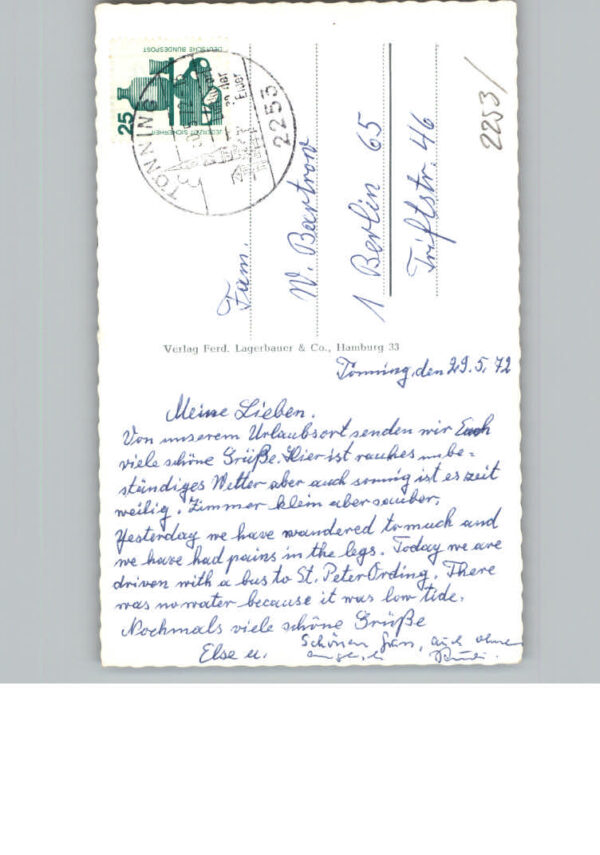 DEUTSCHE BUNDESPOST
25
JEDERZEIT SICHERHEIT
TÖNNING
an der
Eider
2253
2253/
Fam.
W. Bartrow
1 Berlin 65
Triftstr. 46
Verlag Ferd. Lagerbauer & Co., Hamburg 33
Tönning, den 29.5.72
Meine Lieben.
Von unserem Urlaubsort senden wir Euch
viele schöne Grüße. Hier ist rauhes unbe-
ständiges Wetter aber auch sonnig ist es zeit
weilig. Zimmer klein aber sauber.
Yesterday we have wandered to much and
we have had pains in the legs. Today we are
driven with a bus to St. Peter Ording. There
was no water because it was low tide.
Nochmals viele schöne Grüße
Else u.
Schönen Gruß, auch ohne